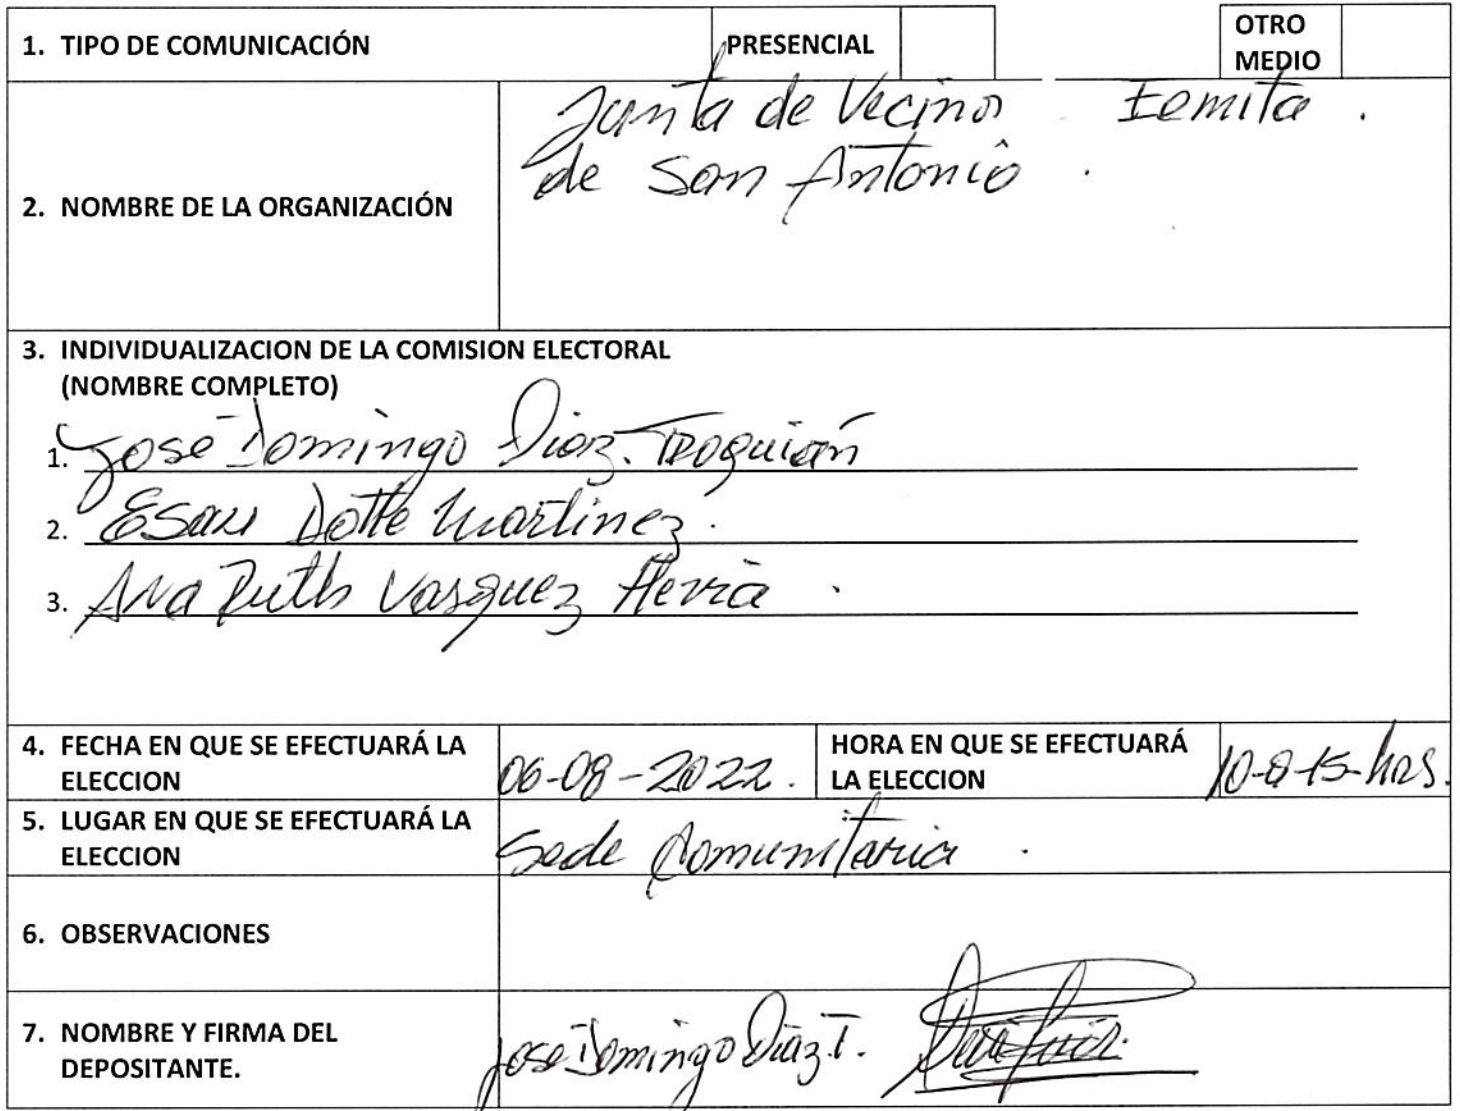 1. TIPO DE COMUNICACIÓN PRESENCIAL OTRO MEDIO
Junta de Vecinos Eemita.
2. NOMBRE DE LA ORGANIZACIÓN de San Antonio.
3. INDIVIDUALIZACION DE LA COMISION ELECTORAL
(NOMBRE COMPLETO)
1. José Domingo Diaz. Troquián
2. Esau Dotte Martinez.
3. Ana Ruth Vasquez Hevia.
4. FECHA EN QUE SE EFECTUARÁ LA ELECCION 06-08-2022. HORA EN QUE SE EFECTUARÁ LA ELECCION 10-a-15-hrs.
5. LUGAR EN QUE SE EFECTUARÁ LA ELECCION Sede Comunitaria.
6. OBSERVACIONES
7. NOMBRE Y FIRMA DEL DEPOSITANTE. José Domingo Diaz T.